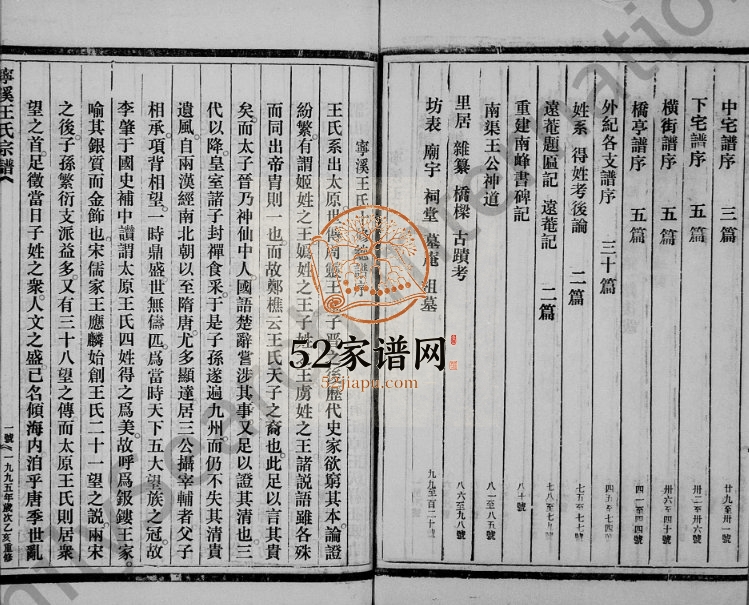 中宅譜序 三篇 廿九至卅一號
下宅譜序 五篇 卅二至卅六號
橫街譜序 五篇 卅六至四十號
橋亭譜序 五篇 四一至四四號
外紀各支譜序 三十篇 四五至七四號
姓系 得姓考後論 二篇 七五至七七號
遠菴題匾記 遠菴記 二篇 七八至七九號
重建南峰書碑記 八十號
南渠王公神道 八一至八五號
里居 雜纂 橋樑 古蹟考 八六至九八號
坊表 廟宇 祠堂 墓庵 祖墓 九九至百二十號
寧溪王氏 總譜序
王氏系出太原世傳周靈王 子晋之後歷代史家欲窮其本論證
紛繁有謂姬姓之王嬀姓之王子姓 王虜姓之王諸説語雖各殊
而同出帝胄則一也而故鄭樵云王氏天子之裔也此足以言其貴
矣而太子晉乃神仙中人國語楚辭嘗涉其事又足以證其清也三
代以降皇室諸子封禪食采于是子孫遂遍九州而仍不失其清貴
遺風自兩漢經南北朝以至隋唐尤多顯達居三公攝宰輔者父子
相承項背相望一時鼎盛世無儔匹爲當時天下五大望族之冠故
李肇于國史補中讚謂太原王氏四姓得之爲美故呼爲鈒鏤王家
喻其銀質而金飾也宋儒家王應麟始創王氏二十一望之説兩宋
之後子孫繁衍支派益多又有三十八望之傳而太原王氏則居衆
望之首足徵當日子姓之衆人文之盛已名傾海内洎乎唐季世亂
寧溪王氏宗譜
一號 一九九五年歲次乙亥重修
52家谱网
52jiapu.com